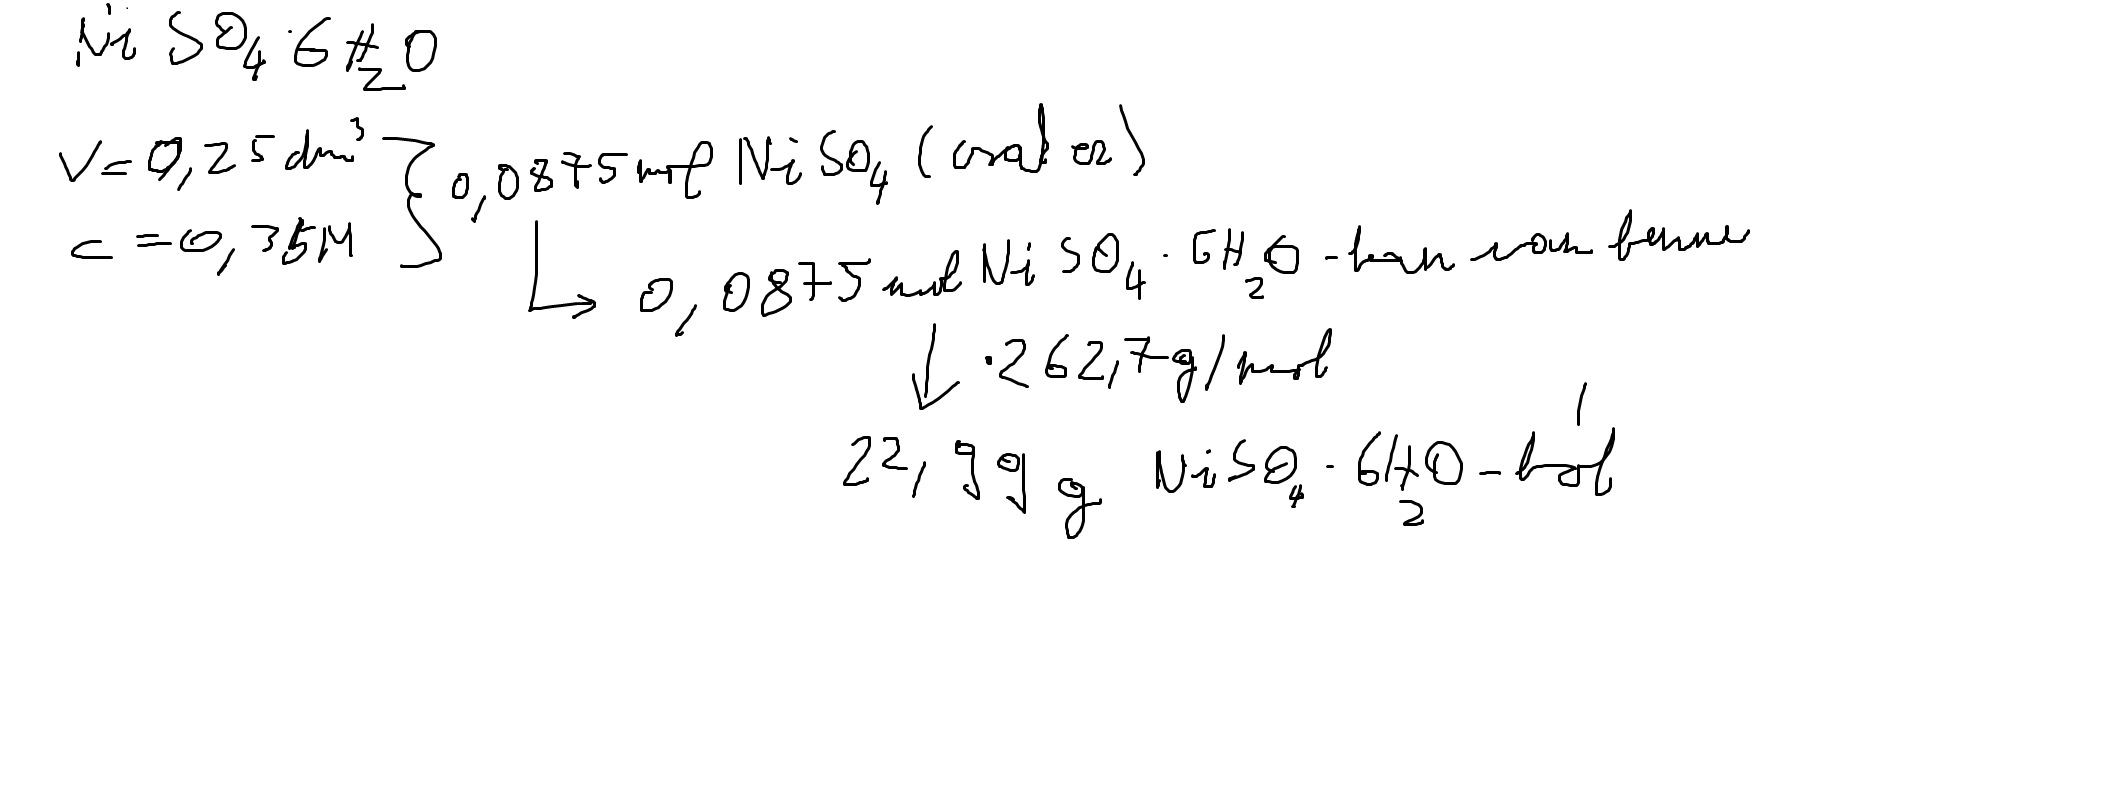 NiSO₄·6H₂O
V=0,25 dm³
c=0,35M
0,0875 mol NiSO₄ (csak ez)
0,0875 mol NiSO₄·6H₂O-ban van benne
·262,7g/mol
22,99 g NiSO₄·6H₂O-ból